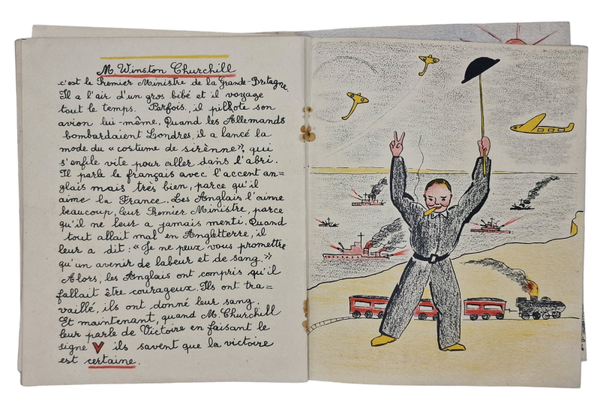 M. Winston Churchill
c'est le Premier Ministre de la Grande-Bretagne.
Il a l'air d'un gros bébé et il voyage
tout le temps. Parfois, il pilote son
avion lui-même. Quand les Allemands
bombardaient Londres, il a lancé la
mode du "costume de sirènne", qui
s'enfile vite pour aller dans l'abri.
Il parle le français avec l'accent an=
glais mais très bien, parce qu'il
aime la France. Les Anglais l'aime
beaucoup, leur Premier Ministre, parce
qu'il ne leur a jamais menti. Quand
tout allait mal en Angleterre, il
leur a dit: "Je ne peux vous promettre
qu'un avenir de labeur et de sang."
Alors, les Anglais ont compris qu'il
fallait être courageux. Ils ont tra=
vaillé, ils ont donné leur sang.
Et maintenant, quand M. Churchill
leur parle de Victoire en faisant le
signe V ils savent que la victoire
est certaine.